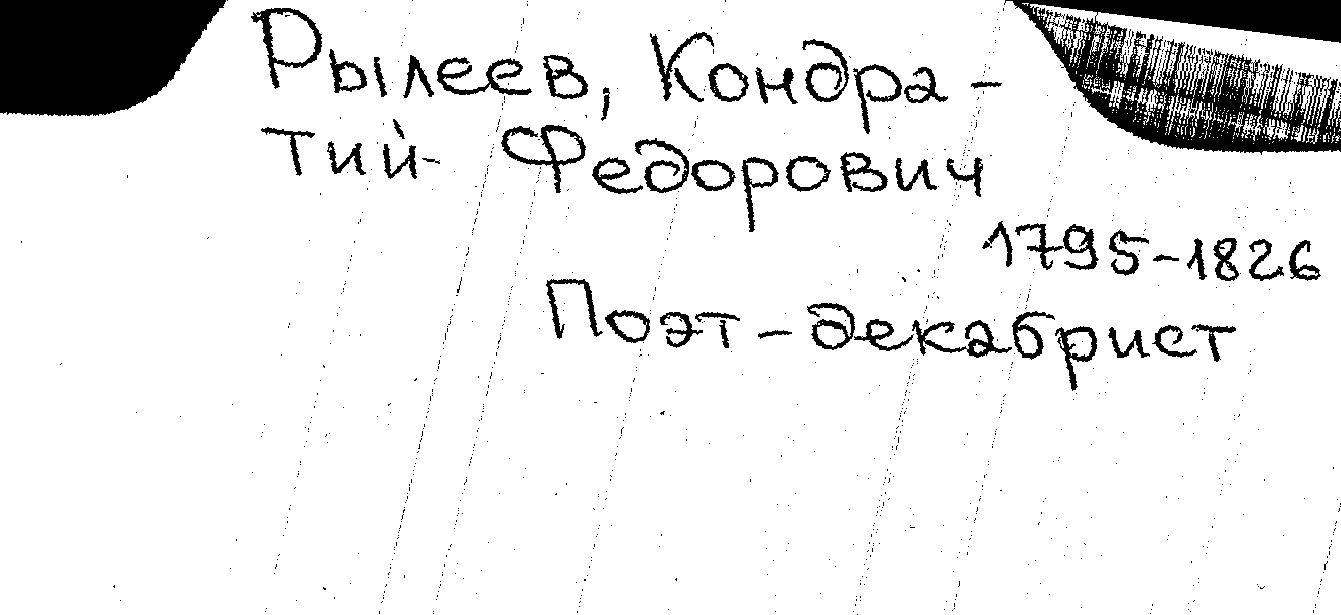 Рылеев, Кондра-
тий Федорович
1795-1826
Поэт-декабрист